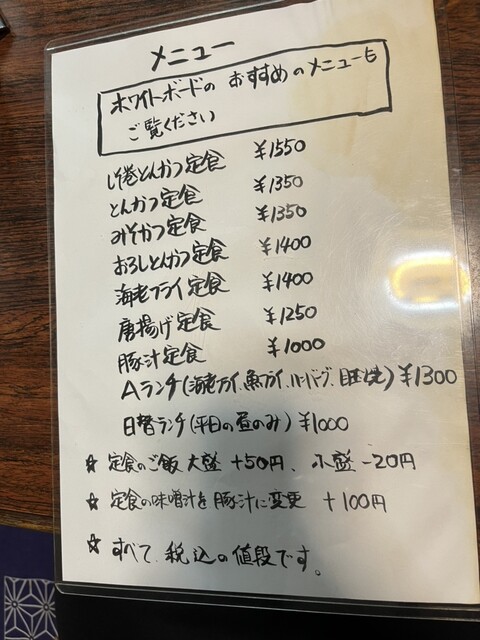 メニュー
ホワイトボードの おすすめのメニューも
ご覧ください
しそ巻とんかつ定食 ¥1550
とんかつ定食 ¥1350
みそかつ定食 ¥1350
おろしとんかつ定食 ¥1400
海老フライ定食 ¥1400
唐揚げ定食 ¥1250
豚汁定食 ¥1000
Aランチ(海老フライ、魚フライ、ハンバーグ、目玉焼) ¥1300
日替ランチ(平日の昼のみ) ¥1000
☆ 定食のご飯 大盛 +50円、小盛 -20円
☆ 定食の味噌汁を豚汁に変更 +100円
☆ すべて 税込の値段です。